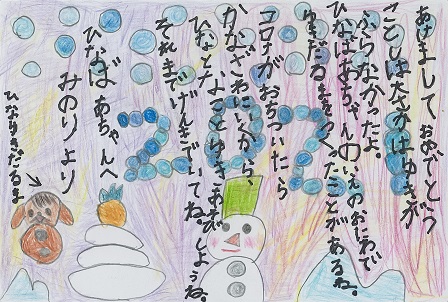 あけまして おめでとう
ことしは大さかはゆきが
ふらなかったよ。
ひなばあちゃんのいえのおにわで
ゆきだるまをつくったことがあるね。
コロナがおちついたら
かなざわにいくから、
ひなと ゆきあそびしようね。
それまでげんきでいてね。
ひなばあちゃんへ
みのりより
ひなゆきだるまよ
2021